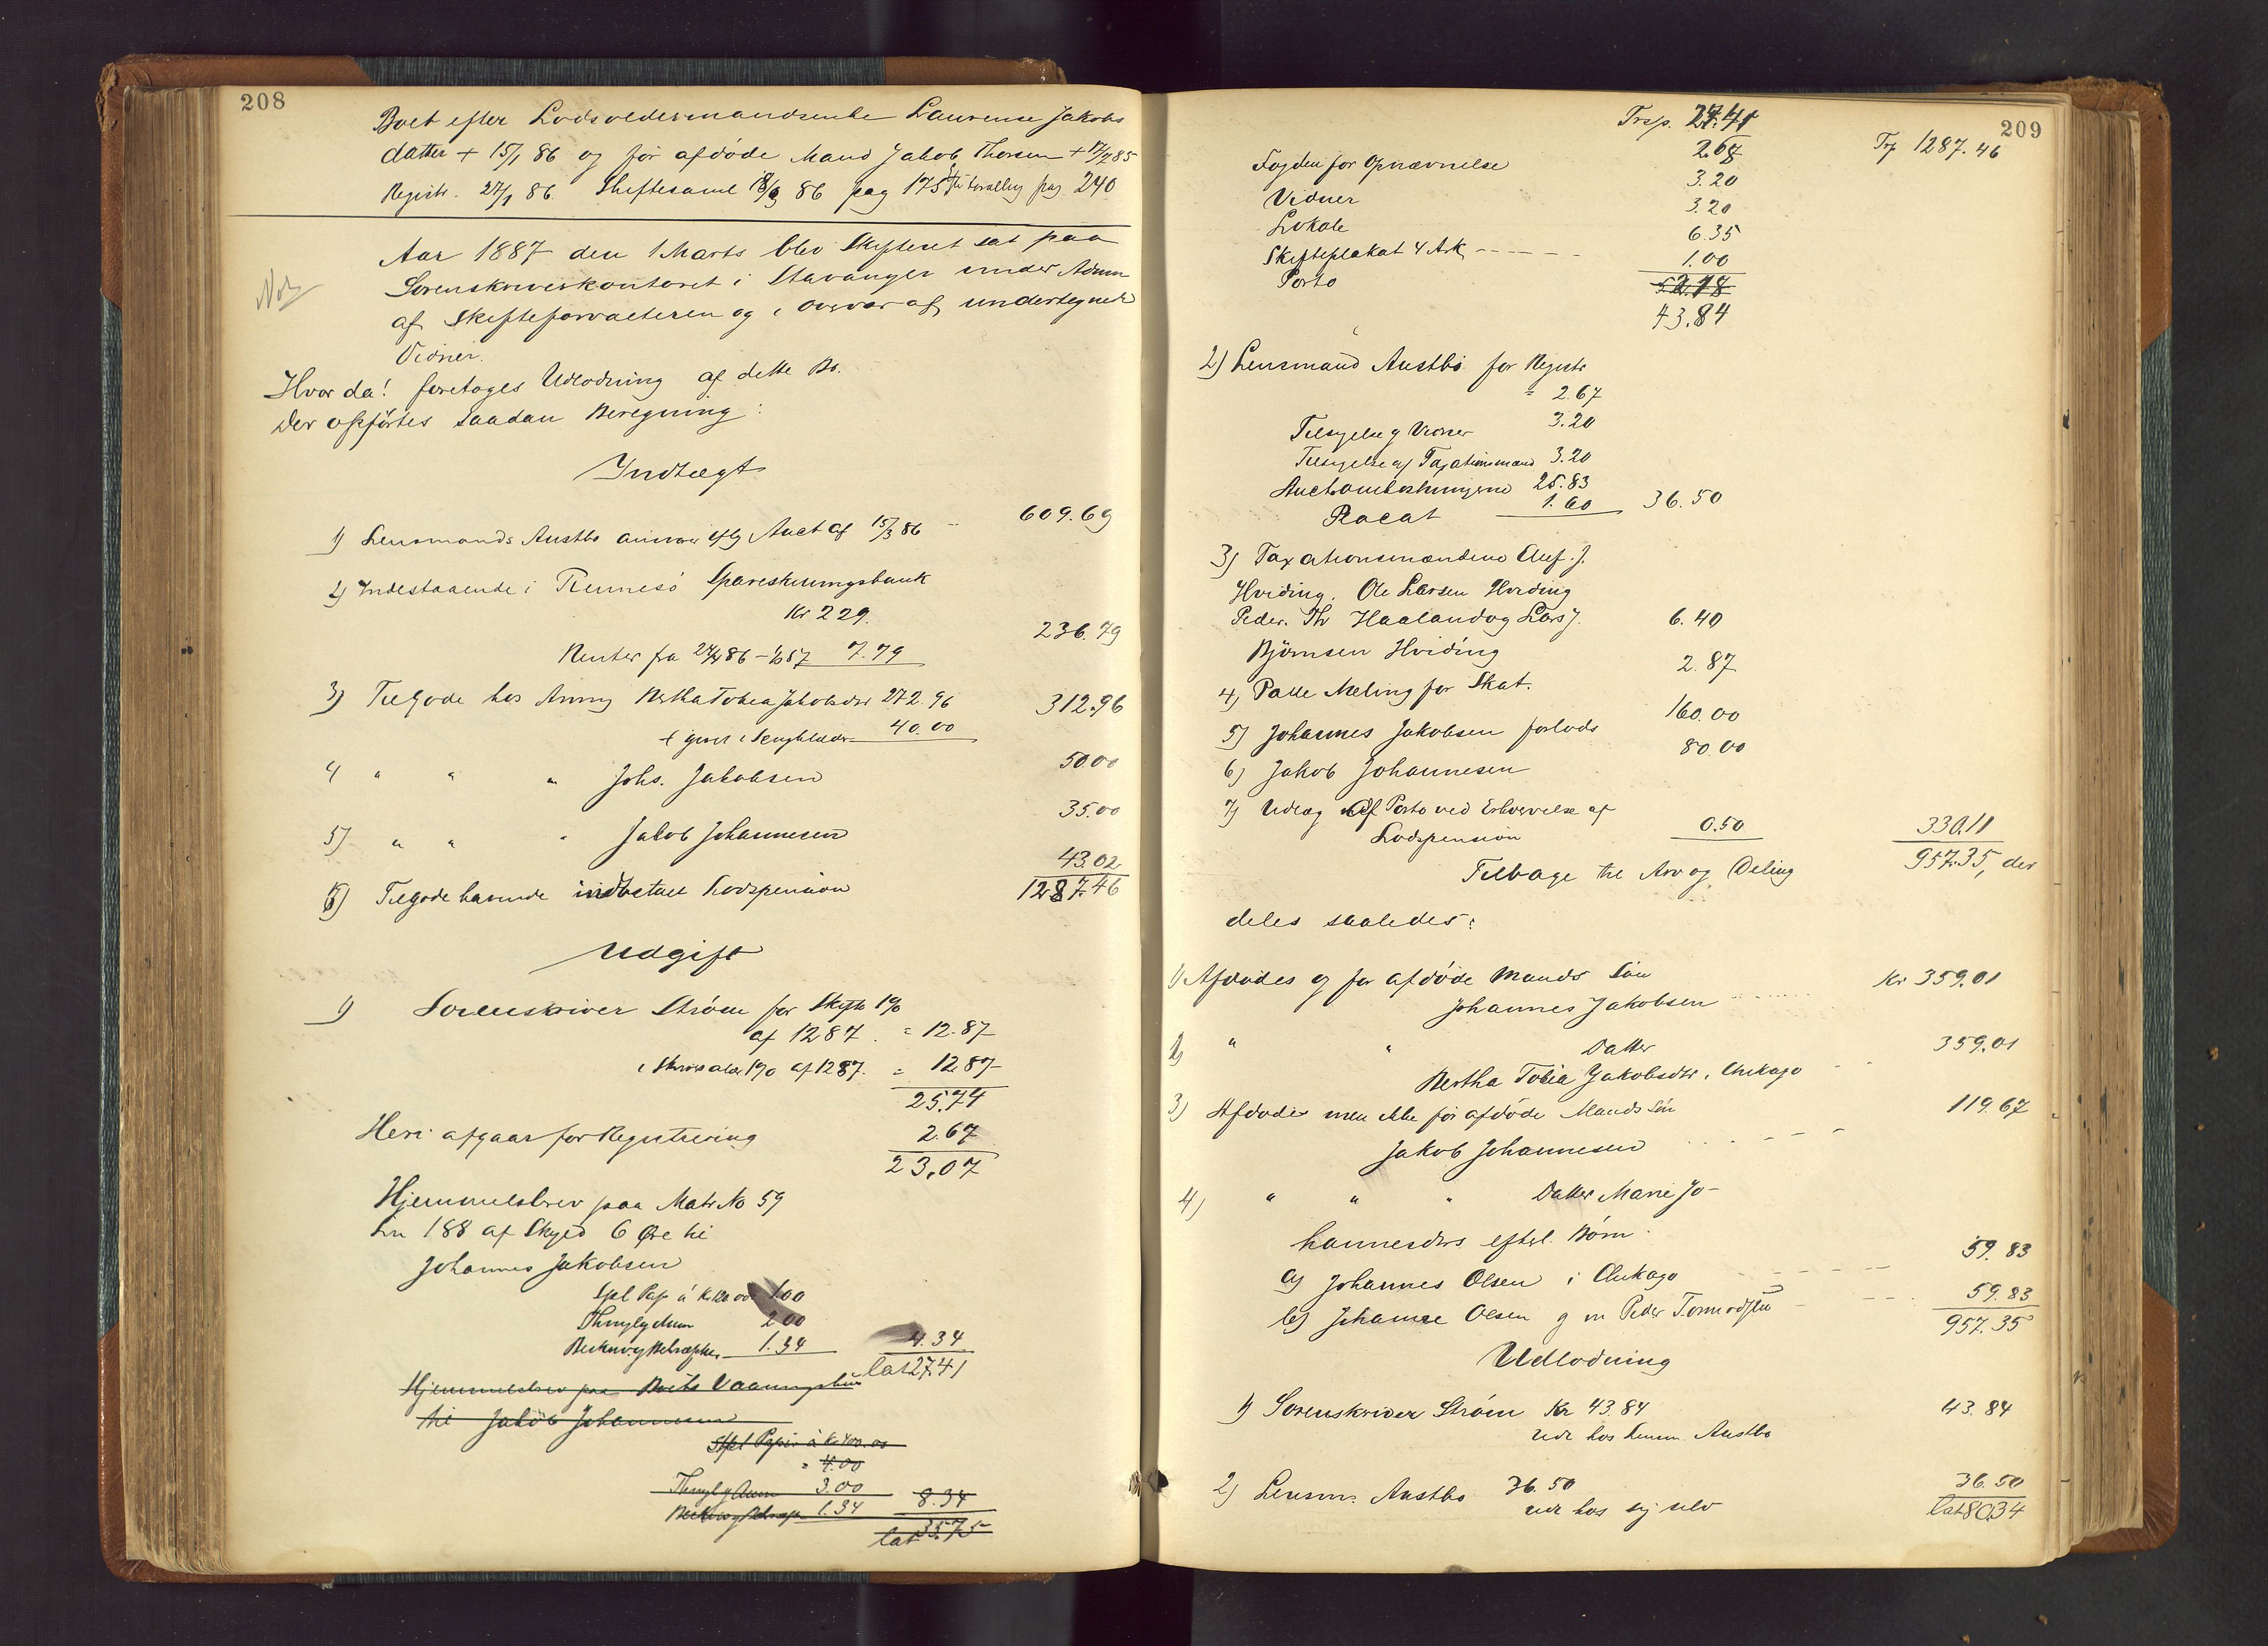 208
Boet efter Lodsoldermandsenke Laurense Jakobs
datter + 15/1 86 og før afdøde Mand Jakob Thorsen + 17/2 85
Registr. 27/1 86. Skiftesaml 18/3 86 pag 175 pag. 240
Aar 1887 den 1 Marts blev Skifteret sat paa
Sorenskriverkontoret i Stavanger under Admn
af Skifteforvalteren og i Overvær af undertegnede
Vidner.
Hvor da! foretages Udlodning af dette Bo.
Der opførtes saadan Beregning:
Indtægt
1) Lensmands Austbø ansvar iflg Auct af 15/3 86 - 609.69
2) Indestaaende i Rennesø Spareskillingsbank
Kr 229.
Renter fra 86 - 87 7.79 236.79
3) Tilgode hos Arving Bertha Tobia Jakobsdtr 272.96 312.96
+ 40.00
4 " " " Johs. Jakobsen 50.00
5) " " " Jakob Johannesen 35.00
6) Tilgodehavende indbetalt Lodspension 43.02
1287.46
Udgift
1) Sorenskriver Strøm for Skifte 1%
af 1287. = 12.87
i Skriversalær 1% af 1287. = 12.87
25.74
Heri afgaar for Registrering 2.67
23.07
Hjemmelsbrev paa Matr No 59
Ln 188 af Skyld 6 Øre til
Johannes Jakobsen
Stpl Pap á Kr 1.00
Thinglysning 2.00
Beskriv og Bekræftelse 1.34 4.34
lat 27.41
Hjemmelsbrev paa Boets Vaaningshus
til Jakob Johannesen
Stpl Papir á Kr 400.00
= 4.00
Thinglysn 3.00
Beskriv og Bekræft 1.34 8.34
lat 35.75
209
Trsp. 27.41 Trp 1287.46
Fogden for Opnævnelse 2.67
Vidner 3.20
Lokale 3.20
Skifteplakat 4 Ark - - - - - 6.35
Porto 1.00
52.18
43.84
2) Lensmand Austbø for Registr
= 2.67
Tilsigelse af Vidner 3.20
Tilsigelse af Taxationsmænd 3.20
Auctomkostningerne 25.83
Placat 1.60 36.50
3) Taxationsmændene Auf. J.
Hviding, Ole Larsen Hviding
Peder Th Haaland og Lars J. 6.40
Bjørnsen Hviding
4) Palle Meling for Skat. 2.87
5) Johannes Jakobsen forlods 160.00
6) Jakob Johannesen 80.00
7) Udlæg af Porto ved Erhvervelse af
Lodspension 0.50 330.11
Tilbage til Arv og Deling 957.35, der
deles saaledes:
1) Afdødes og før afdøde Mands Søn
Johannes Jakobsen Kr 359.01
2) " " Datter
Bertha Tobia Jakobsdtr i Chikago 359.01
3) Afdødes men ikke før afdøde Mands Søn
Jakob Johannesen 119.67
4) " " " Datter Marie Jo-
hannesdrs efterl. Børn.
a) Johannes Olsen i Chikago 59.83
b) Johanne Olsen g m Peder 59.83
957.35
Udlodning
1) Sorenskriver Strøm Kr 43.84 43.84
udl hos Lensm. Austbø
2) Lensm. Austbø 36.50 36.50
udl hos sig selv lat 80.34